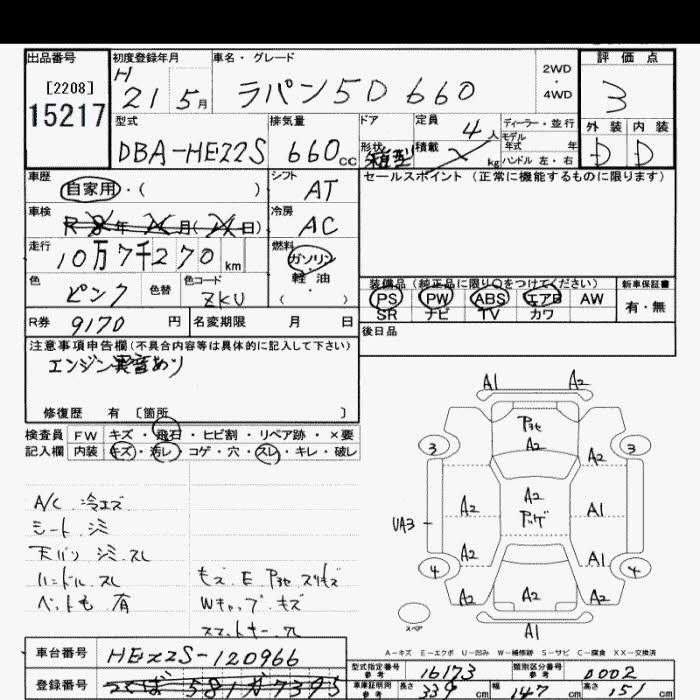 出品番号 初度登録年月 車名・グレード 評価点
[2208] H 2WD
15217 21 5月 ラパン 5D 660 ・ 3
4WD
型式 排気量 ドア 定員 ディーラー・並行 外装 内装
DBA-HE22S 660cc 4人 モデル年式 年 D D
形状 箱型 積載 kg ハンドル 左・右
車歴 シフト セールスポイント(正常に機能するものに限ります)
自家用・( ) AT
車検 冷房
年 月( 日) AC
走行 燃料
10万7千270km ガソリン・
軽油
色 色替 色コード ・
ピンク ZKU ( )
装備品(純正品に限り○をつけてください) 新車保証書
PS PW ABS エアB AW 有・無
SR ナビ TV カワ
R券 9170円 名変期限 月 日
後日品
注意事項申告欄(不具合内容等は具体的に記入して下さい)
エンジン異音あり
修復歴 有 〔箇所 〕
検査員 FW キズ・飛石・ヒビ割・リペア跡・×要
記入欄 内装 キズ・汚レ・コゲ・穴・スレ・キレ・破レ
A1 A2
A2
3 3
A2
A/C 冷エズ
シート シミ
天バリ シミ スレ
ハンドル スレ
ペット毛 有
モズ E
Wキャップ キズ
スマートキー
A2 A2 A1
UA3
A2 A1
4 4
A2 A2 A2
スペア
A1
A-キズ E-エクボ U-凹み W-補修跡 S-サビ C-腐食 XX-交換済
車台番号 HE22S-120966
型式指定番号 16173 類別区分番号 0002
参考 参考
登録番号 つくば 581 か 7395
車庫証明用 長さ 339cm 幅 147cm 高さ 151cm
参考